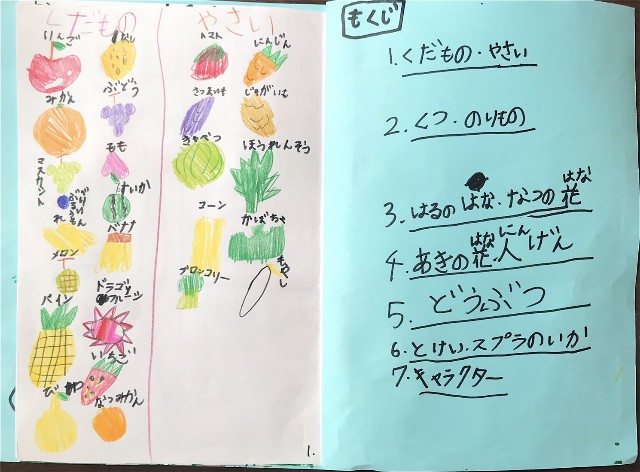 くだもの
やさい
りんご
なし
みかん
ぶどう
マスカット
もも
ぶるーべりー
すいか
れもん
バナナ
メロン
パイン
ドラゴンフルーツ
いちご
びわ
なつみかん
トマト
にんじん
さつまいも
じゃがいも
きゃべつ
ほうれんそう
コーン
かぼちゃ
ブロッコリー
もやし
1.
もくじ
1.くだもの・やさい
2.くつ・のりもの
3.はるのはな・なつの花
はな
4.あきの花・人げん
はな にん
5.どうぶつ
6.とけい・スプラのいか
7.キャラクター